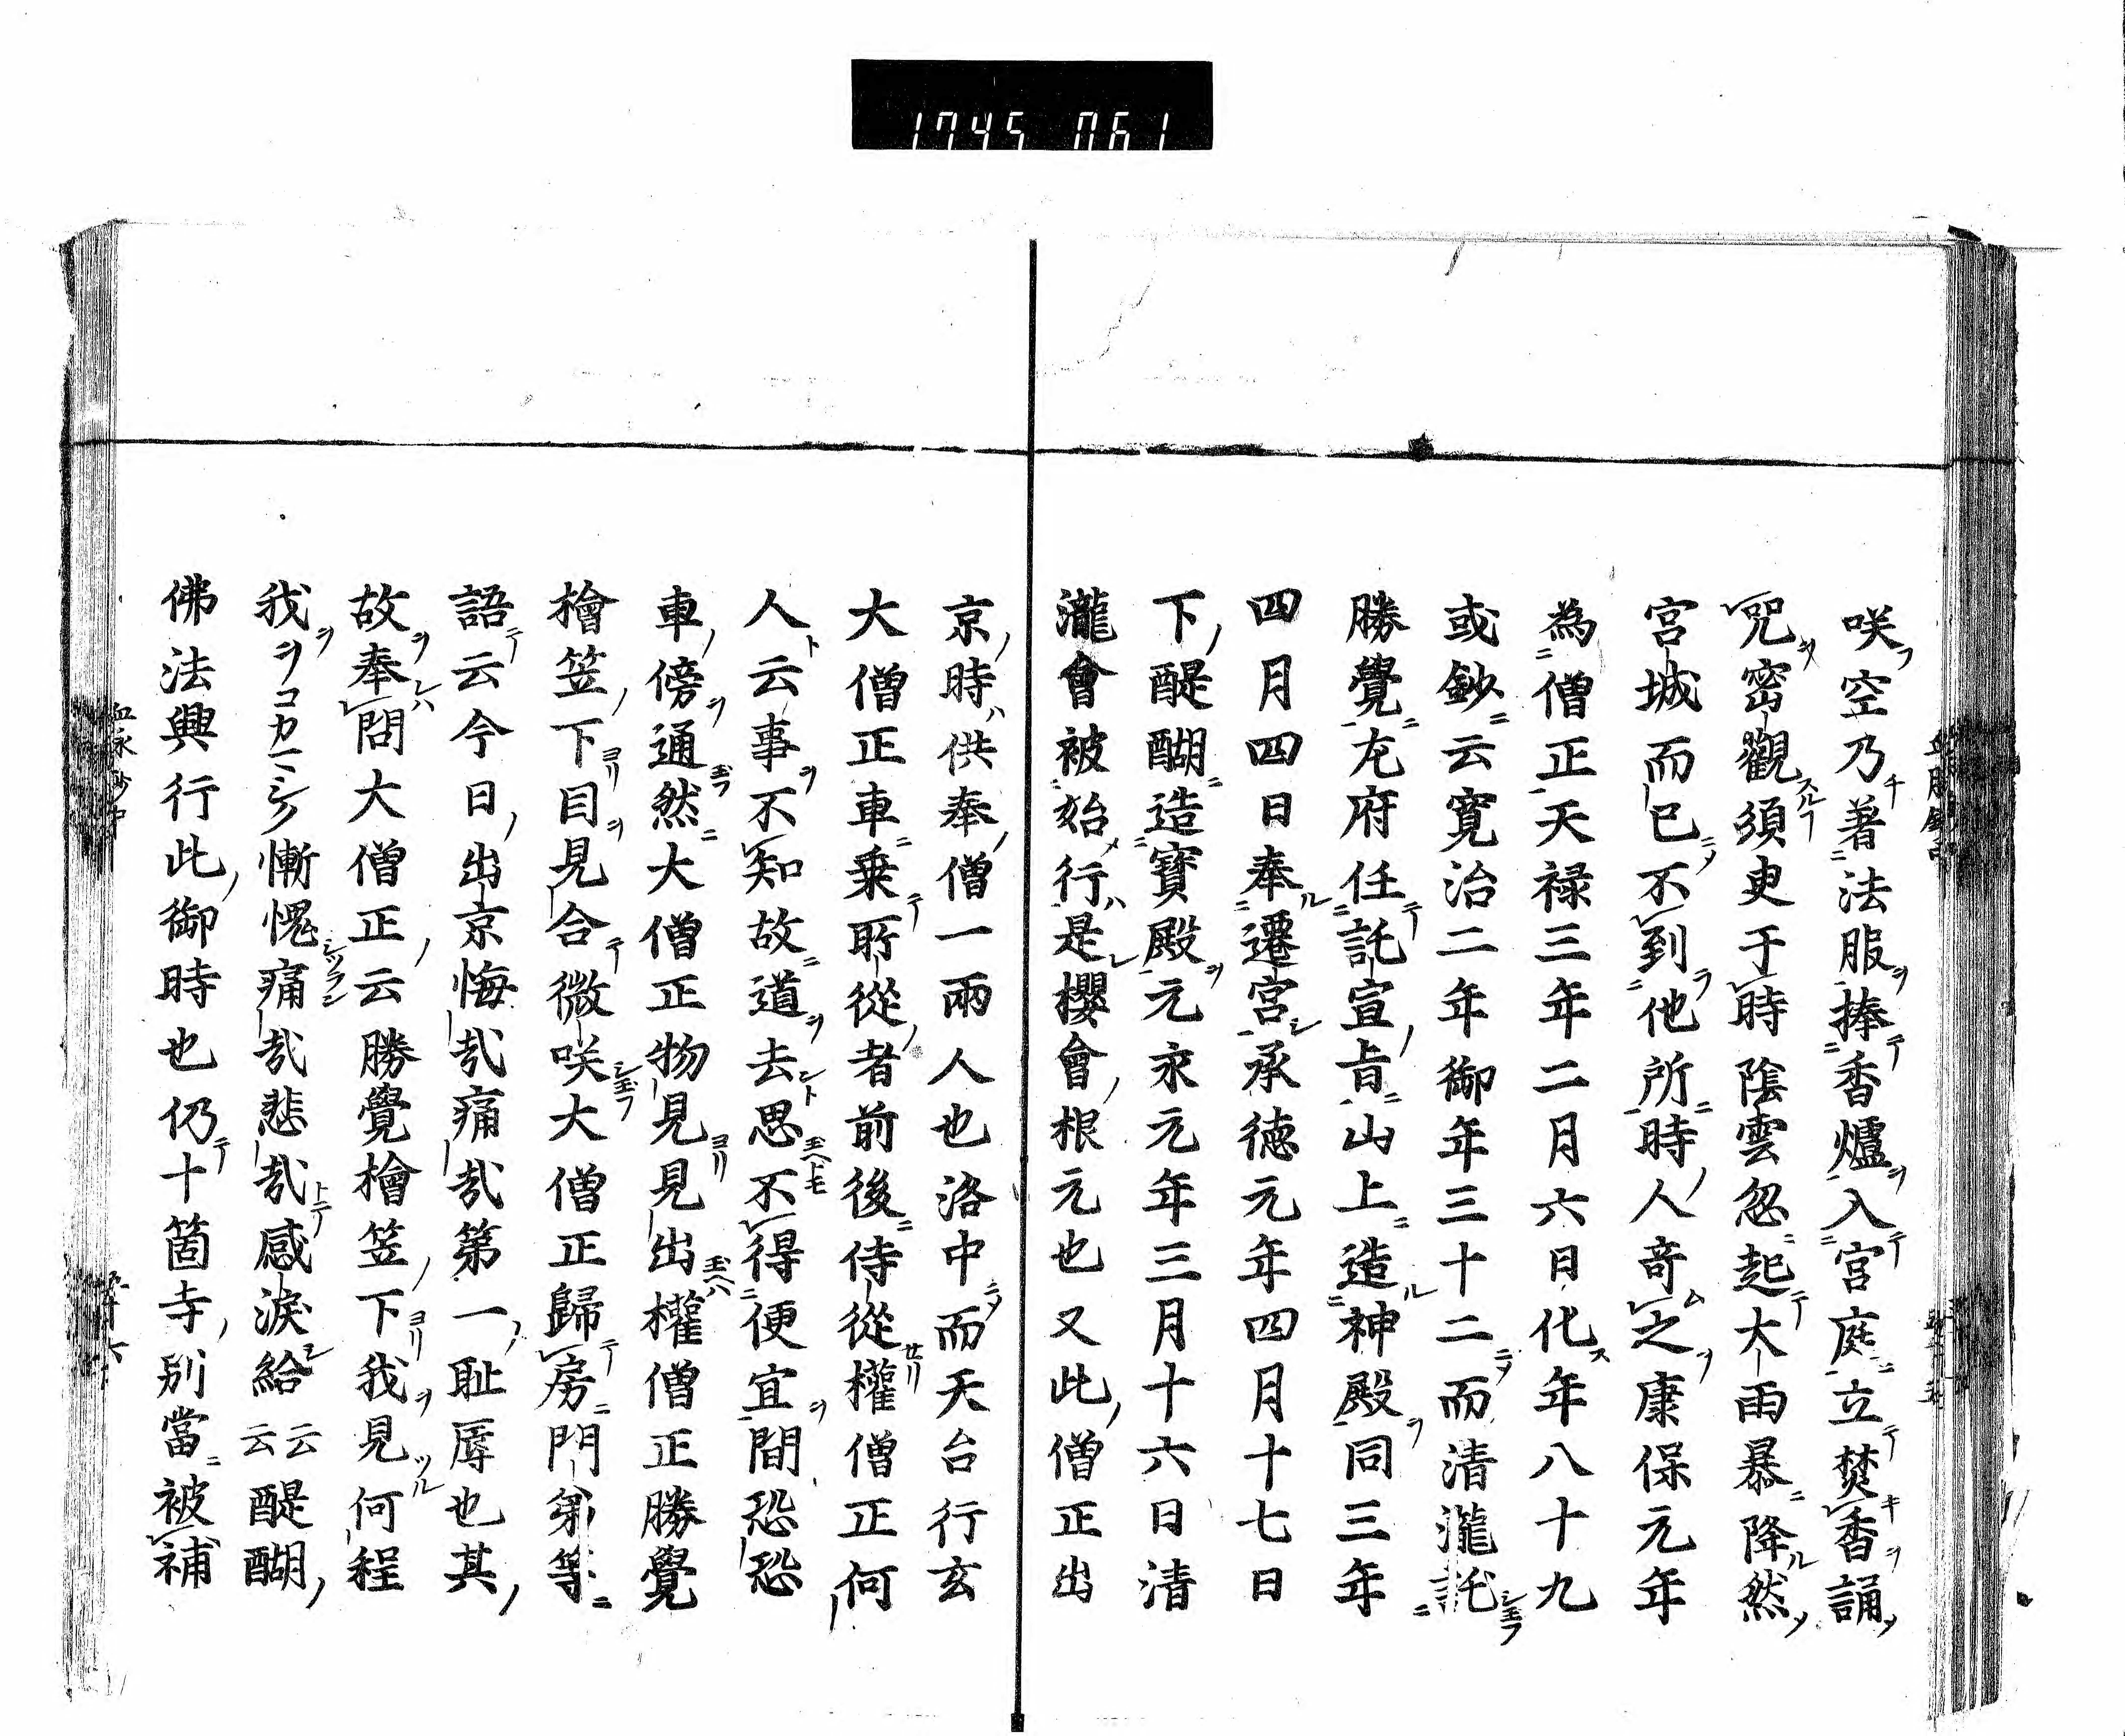 1745 061
咲空乃著法服捧香爐入宮庭立焚香誦
咒密觀須臾于時陰雲忽起大雨暴降然
宮城而已不到他所時人奇之康保元年
為僧正天禄三年二月六日化年八十九
或鈔云寛治二年御年三十二而清瀧託
勝覺尤府任託宣旨山上造神殿同三年
四月四日奉遷宮承徳元年四月十七日
下醍醐造寶殿元永元年三月十六日清
瀧會被始行是櫻會根元也又此僧正出
京時供奉僧一兩人也洛中而天台行玄
大僧正車乗所從者前後侍從權僧正何
人云事不知故道去思不得便宜間恐恐
車傍通然大僧正物見見出權僧正勝覺
檜笠下目見合微咲大僧正歸房門弟等
語云今日出京悔哉痛哉第一耻辱也其
故奉問大僧正云勝覺檜笠下我見何程
我ヲコカマシク慚愧痛哉悲哉感涙給云云醍醐
佛法興行此御時也仍十箇寺別當被補